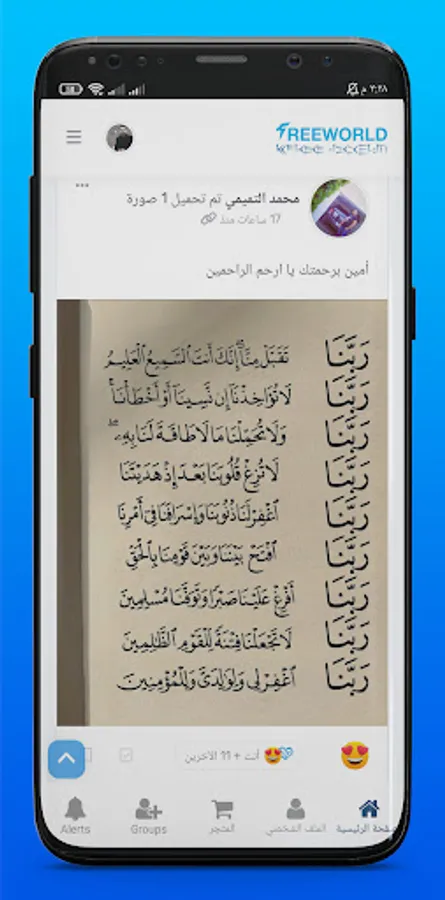 ٢:٢٨ م
FREEWORLD
محمد التميمي تم تحميل 1 صورة
17 ساعات منذ
أمين برحمتك يا ارحم الراحمين
رَبَّنَا تَقَبَّلْ مِنَّا إِنَّكَ أَنتَ السَّمِيعُ الْعَلِيمُ
رَبَّنَا لَا تُؤَاخِذْنَا إِن نَّسِينَا أَوْ أَخْطَأْنَا
رَبَّنَا وَلَا تُحَمِّلْنَا مَا لَا طَاقَةَ لَنَا بِهِ
رَبَّنَا لَا تُزِغْ قُلُوبَنَا بَعْدَ إِذْ هَدَيْتَنَا
رَبَّنَا اغْفِرْ لَنَا ذُنُوبَنَا وَإِسْرَافَنَا فِي أَمْرِنَا
رَبَّنَا افْتَحْ بَيْنَنَا وَبَيْنَ قَوْمِنَا بِالْحَقِّ
رَبَّنَا أَفْرِغْ عَلَيْنَا صَبْرًا وَتَوَفَّنَا مُسْلِمِينَ
رَبَّنَا لَا تَجْعَلْنَا فِتْنَةً لِلْقَوْمِ الظَّالِمِينَ
رَبَّنَا اغْفِرْ لِي وَلِوَالِدَيَّ وَلِلْمُؤْمِنِينَ
أنت + 11 الآخرين
صفحة الرئيسية
الملف الشخصي
المتجر
Groups
Alerts